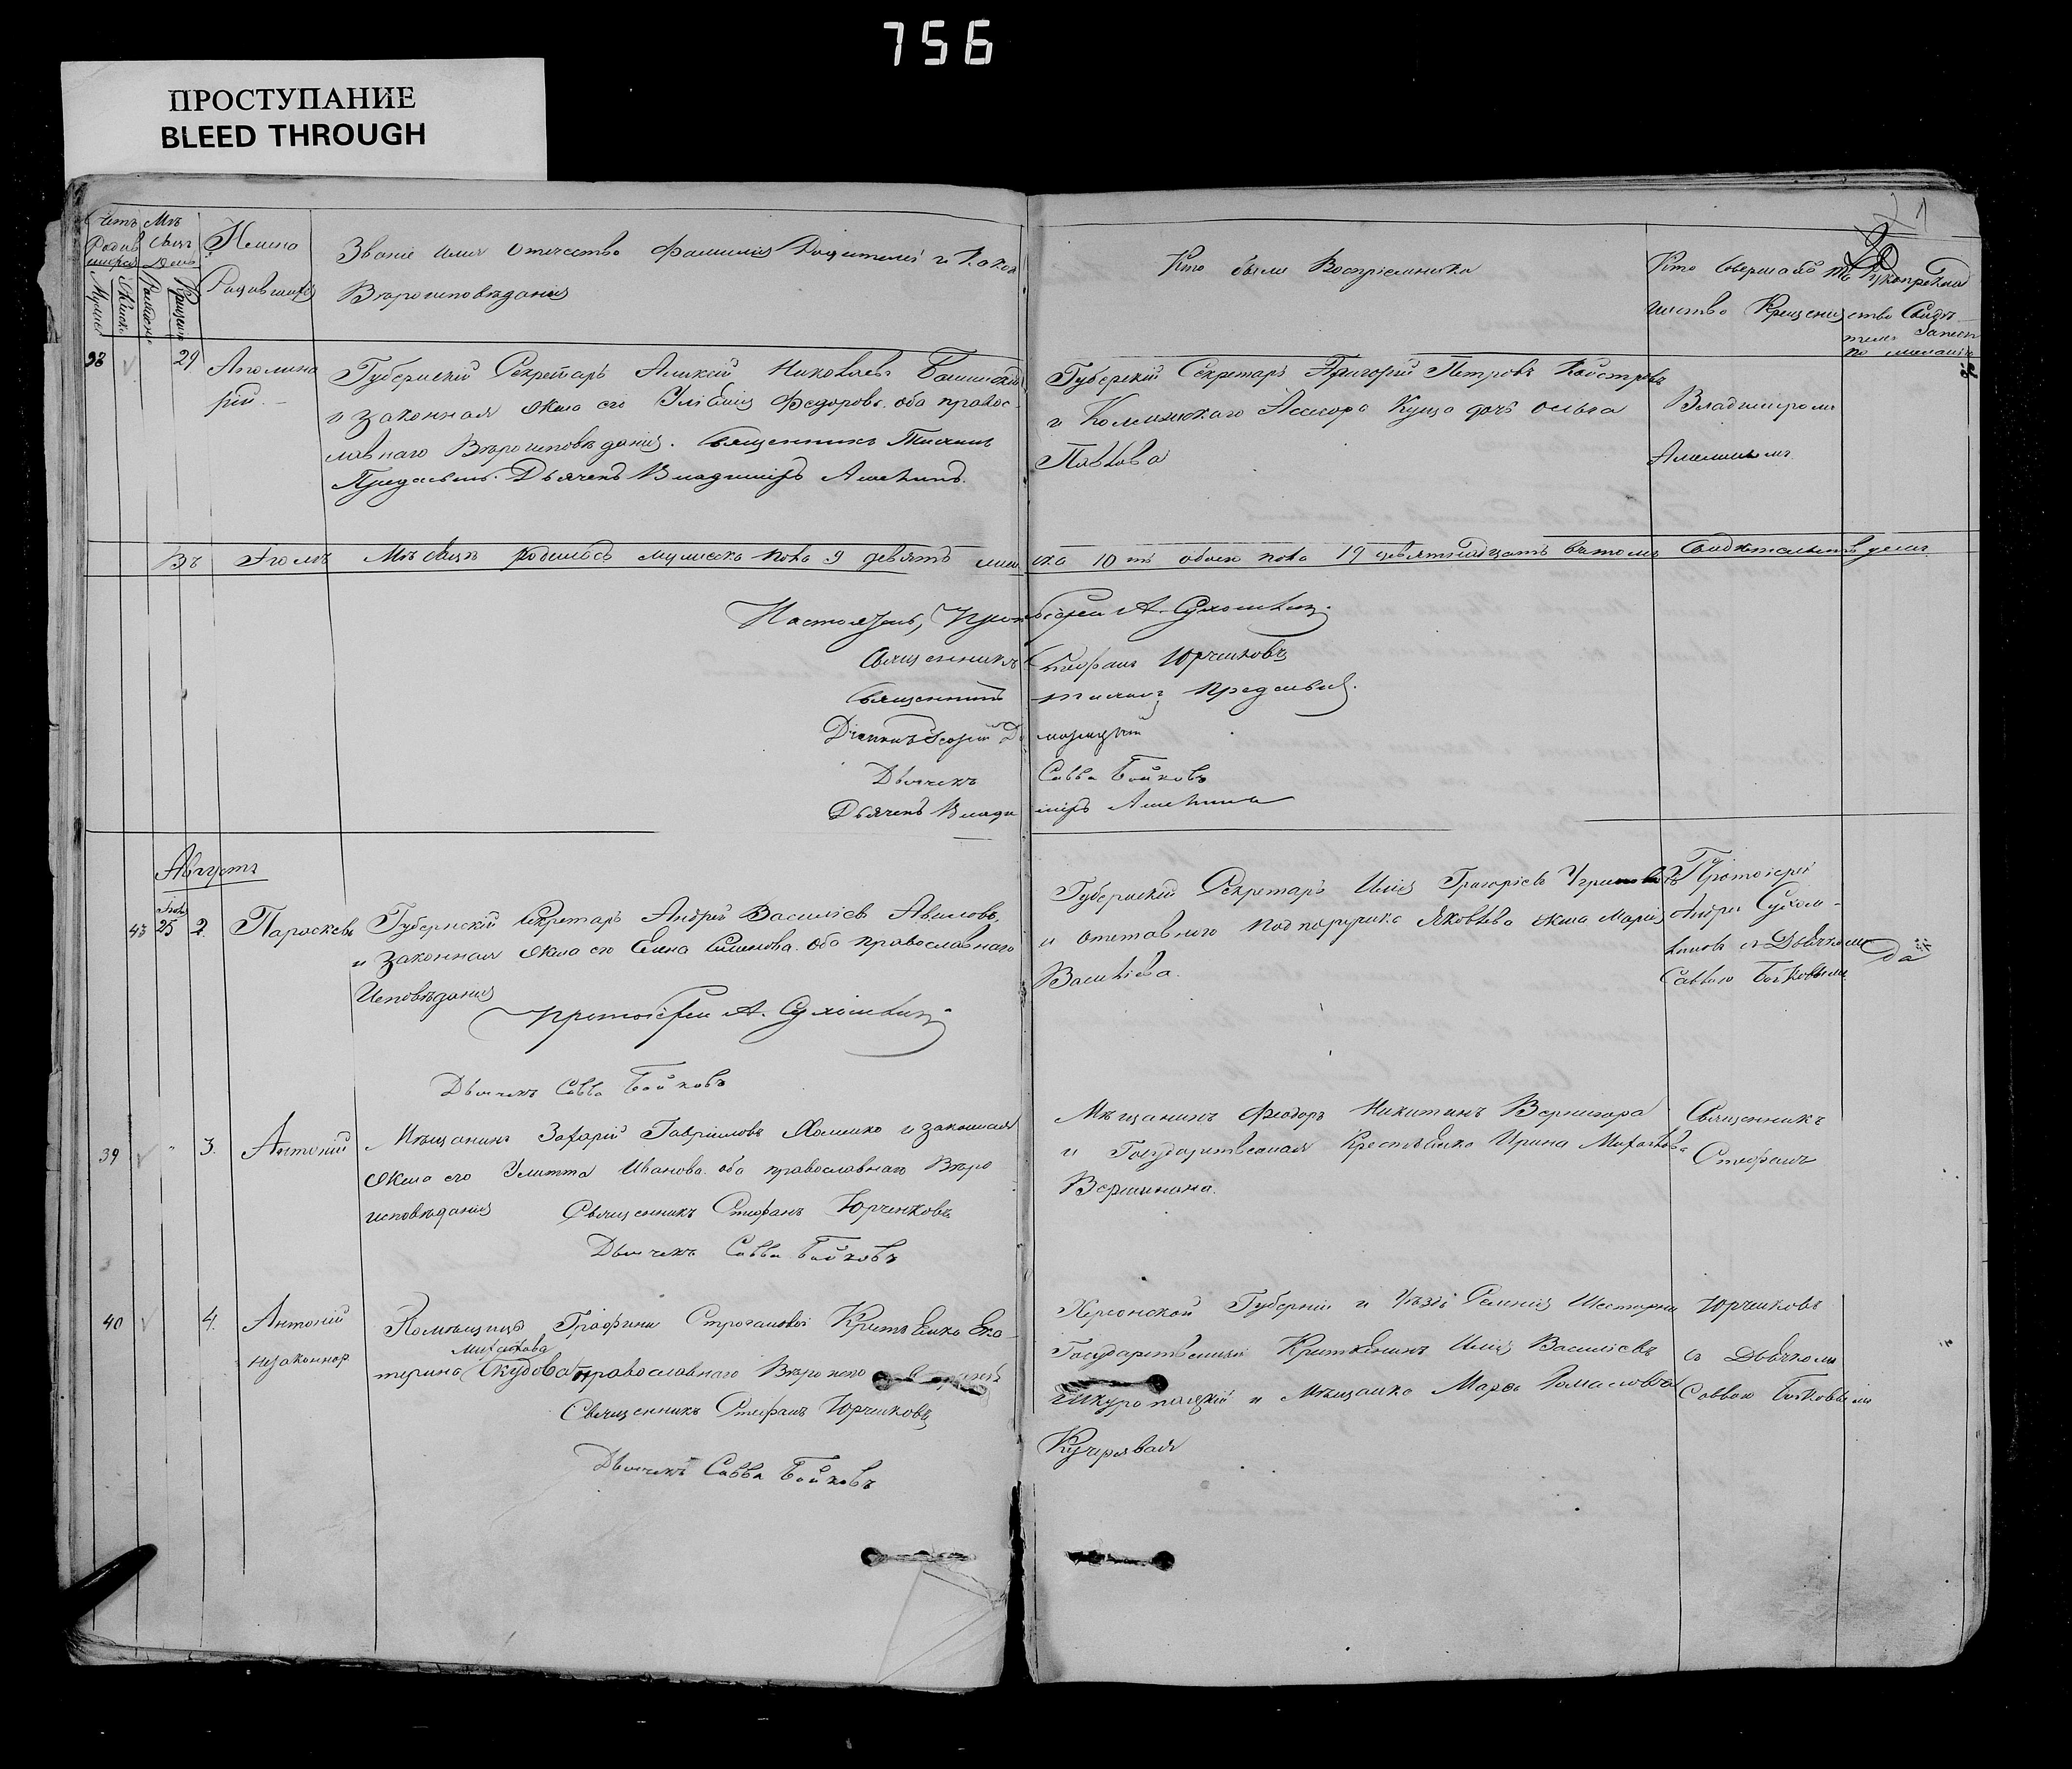 756
ПРОСТУПАНИЕ
BLEED THROUGH
Имена
Родившихся
Званіе Имя Отчество Фамилія Родителей и Какого
Вѣроисповѣданія
Кто были Воспріемники
Кто Совершалъ Та
инство Крещенія
Рукоприклад
ство Свидѣ
телей Записи
по желанію
Мужеска
Женска
Рожденія
Крещенія
38
29
Аполина
рій
Губернскій Секретарь Алексѣй Николаевъ
и законная жена его Федорова оба правос
лавнаго Вѣроисповѣданія. Священникъ Тихонъ
Дьячекъ Владиміръ
Губернскій Секретарь Григорій Петровъ
и Коллежскаго Асесора Куща дочь Ольга
Павлова
Владиміромъ
Въ Этомъ Мѣсяцѣ родилось мужеска пола 9 девять женска 10 ть обоего пола 19 девятнадцать въ томъ Свидѣтельствуемъ
Настоятель, Протоіерей А.
Священникъ Стефанъ Юрченковъ
Священникъ Тихонъ
Дьячекъ Савва Бойковъ
Дьячекъ Владиміръ
Августъ
43
25
2.
Параскева
Губернскій Секретарь Андрей Василіевъ Авиловъ
и законная жена его Елена Семенова оба православнаго
Исповѣданія
Протоіерей А.
Дьячекъ Савва Бойковъ
Губернскій Секретарь Илія Григоріевъ
и отставнаго подпоручика Яковлева жена Марія
Василіева.
Протоіерей
Андрей
съ Дьячкомъ
Саввою Бойковымъ
да
39
3.
Антоній
Мѣщанинъ Захарій Гавриловъ Хоменко и законная
жена его Улитта Иванова оба православнаго Вѣро
исповѣданія Священникъ Стефанъ Юрченковъ
Дьячекъ Савва Бойковъ
Мѣщанинъ Феодоръ Никитинъ Вернигора
и Государственная Крестьянка Ирина Михайлова
Вершинина.
Священникъ
Стефанъ
40
4.
Антоній
незаконнор
Помѣщицы Графини Строгановой Крестьянка Ека
терина Михайлова Скудова православнаго Вѣроиспо
Священникъ Стефанъ Юрченковъ
Дьячекъ Савва Бойковъ
Херсонской Губерніи и Уѣзда Селенія
Государственный Крестьянинъ Илія Василіевъ
и Мѣщанка Марѳа Томасова
Кучерявая
Юрченковъ
съ Дьячкомъ
Саввою Бойковымъ